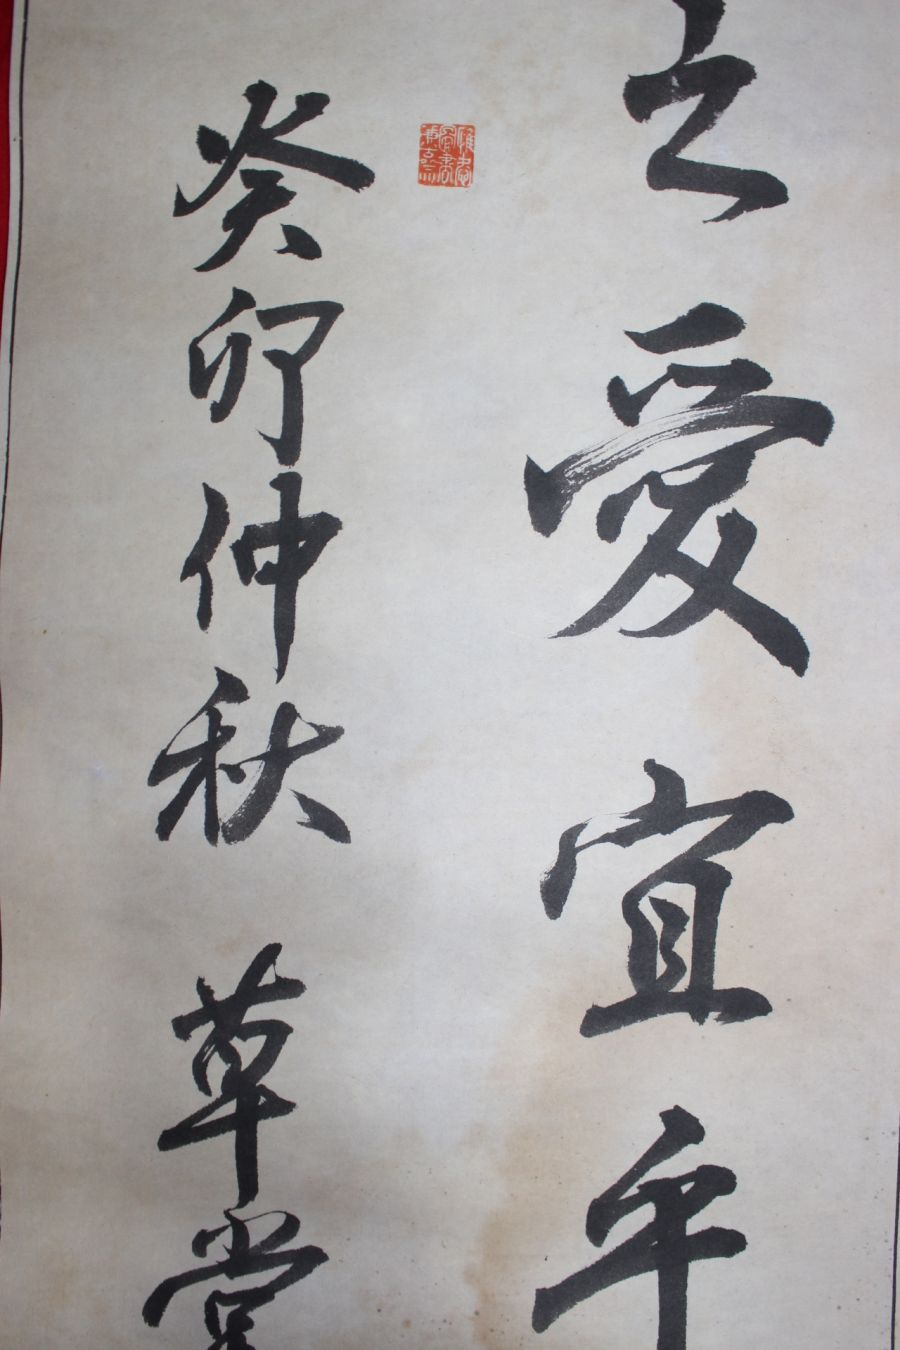 之愛宜平
癸卯仲秋 草堂